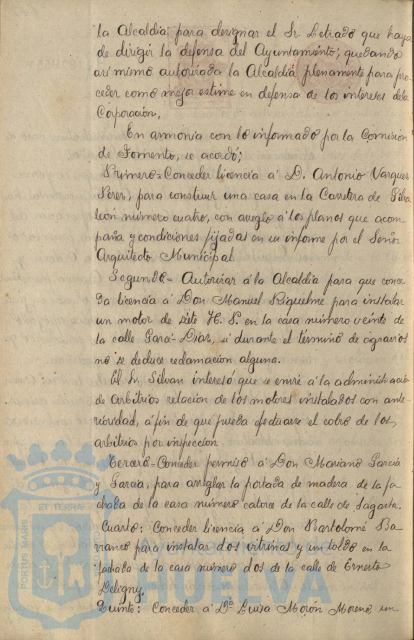 la Alcaldía para designar el Sr Letrado que haya
de dirigir la defensa del Ayuntamiento, quedando
asímismo autorizada la Alcaldía plenamente para pro
ceder como mejor estime en defensa de los intereses de la
Corporación,
En armonía con lo informado por la Comisión
de Fomento, se acordó;
Primero- Conceder licencia á D. Antonio Vazquez
Perez, para construir una casa en la Carretera de Gibra
león número cuatro, con arreglo á los planos que acom
paña y condiciones fijadas en su informe por el Señor
Arquitecto Municipal.
Segundo- Autorizar á la Alcaldía para que conce
da licencia á Don Manuel Riquelme para instalar
un motor de siete H. P. en la casa número veinte de
la calle Garci-Diaz, si durante el término de agravios
no se deduce reclamación alguna.
El Sr. Silvan interesó que se envíe á la administración
de Arbitrios relación de los motores instalados con ante
rioridad, á fin de que pueda efectuarse el cobro de los
arbitrios por inspección
Tercero- Conceder permiso á Don Mariano García
y García, para arreglar la portada de madera de la fa
chada de la casa número catorce de la calle de Sagasta.
Cuarto: Conceder licencia á Don Bartolomé Ba
rranco para instalar dos vitrinas y un toldo en la
fachada de la casa número dos de la calle de Ernesto
Deligny.
Quinto: Conceder á Dª Luisa Moron Moreno un
PORTUS MARIS
ET TERRAE
HUELVA